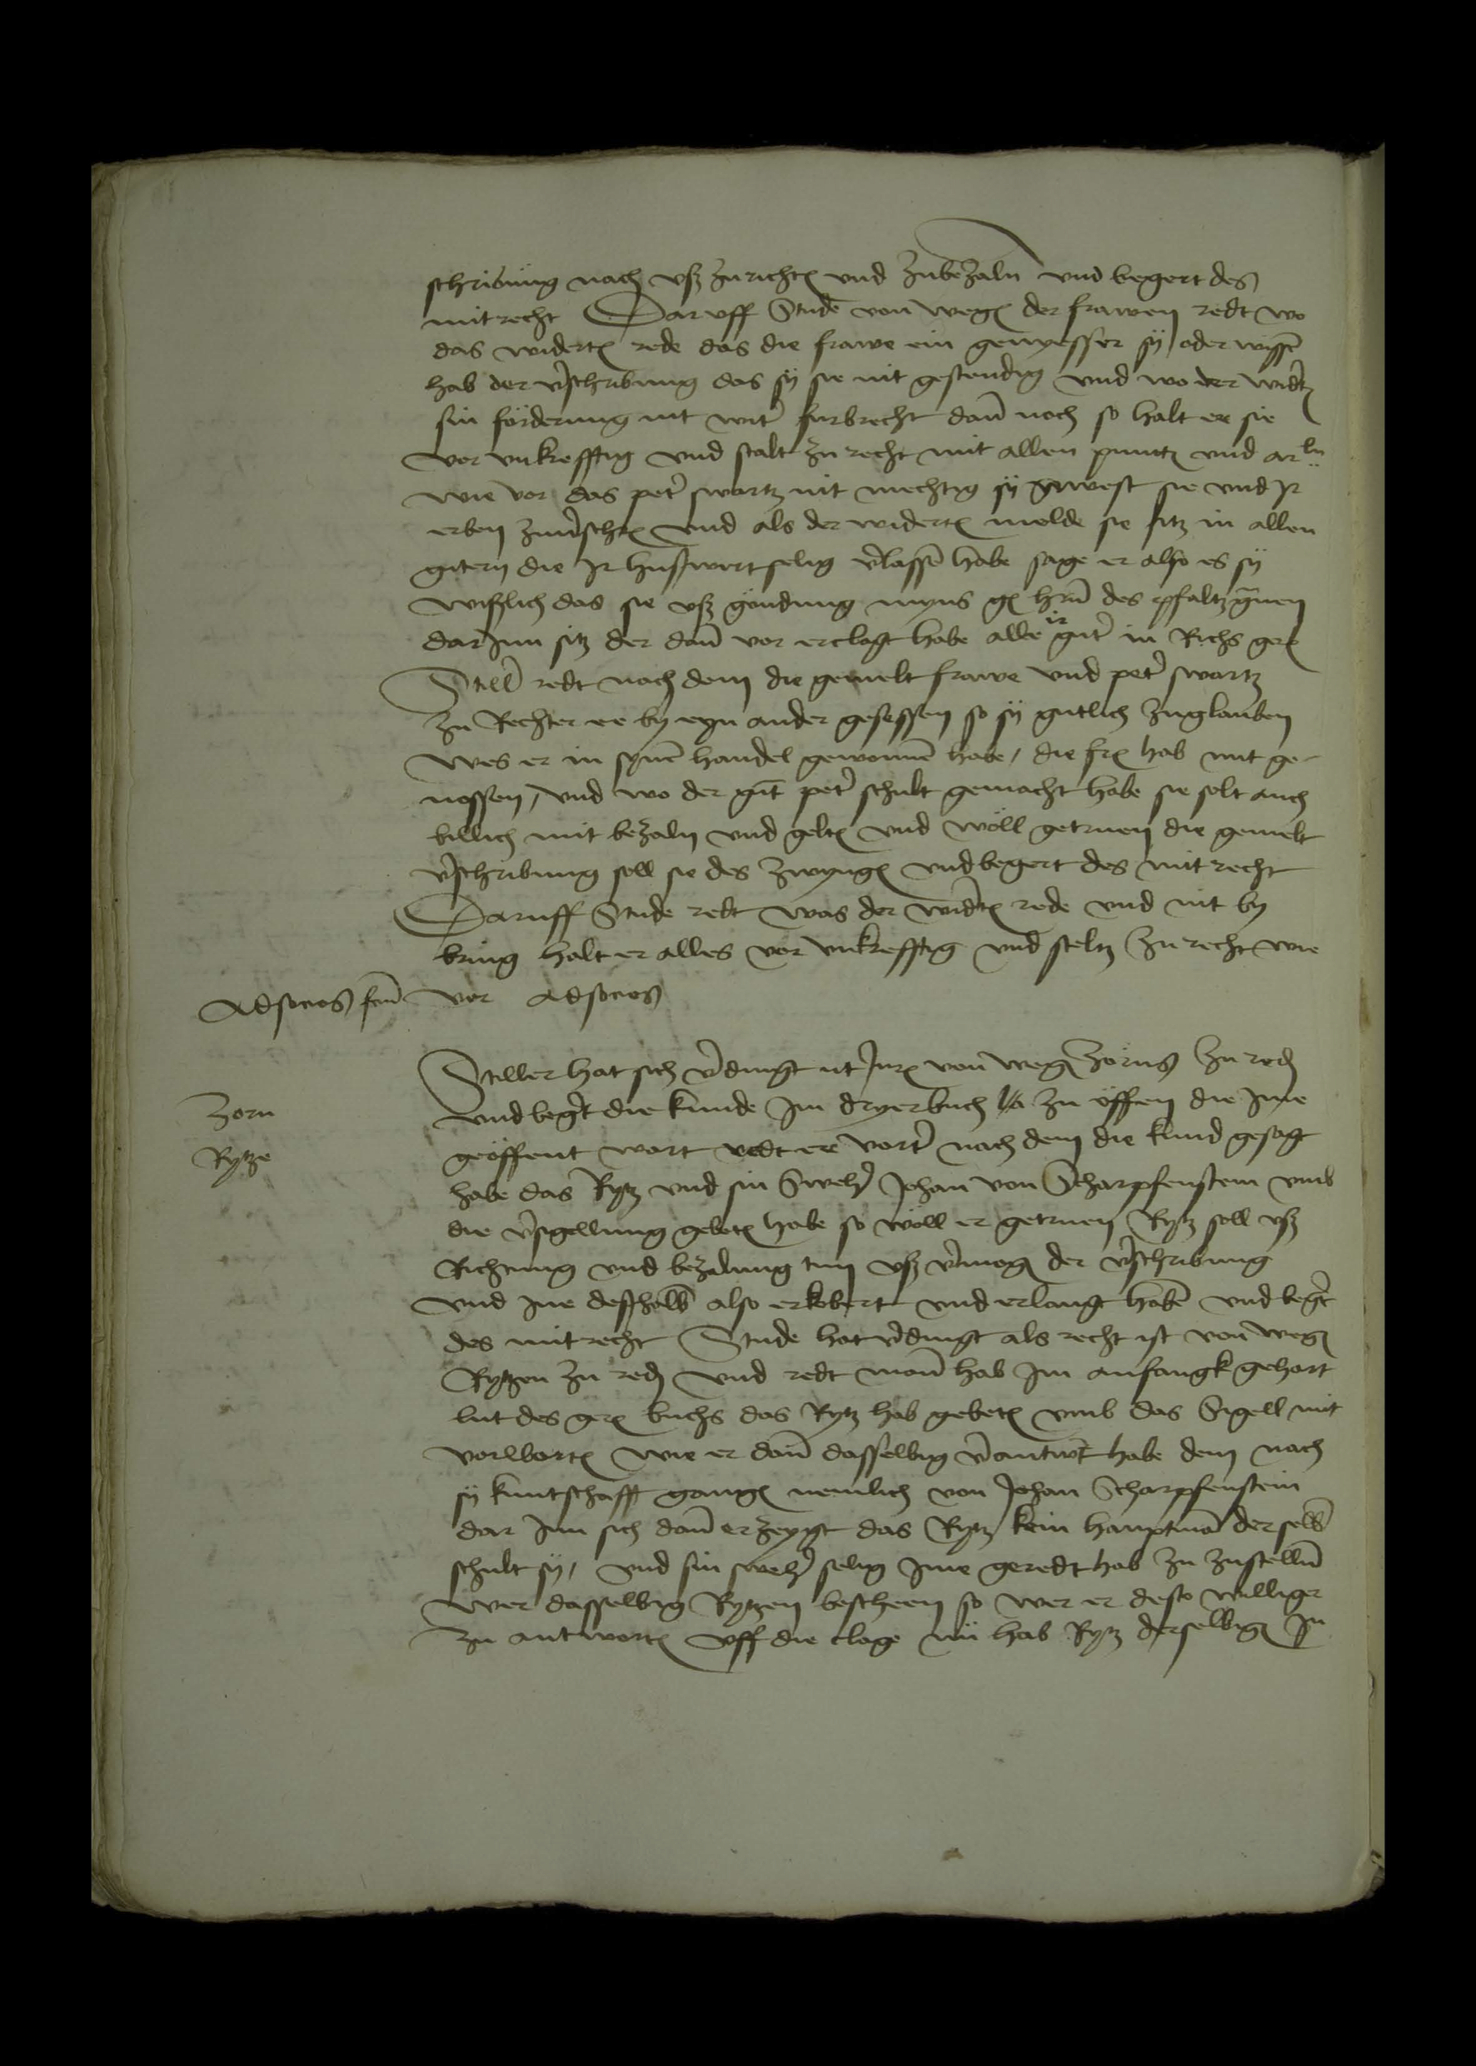 schribung nach vsz zurichten und zubezaln und begert des
mit recht Daruff Stude von wegen der frawen redt wo
das widerteil rede das die frawe ein gewesser sy oder wissen
hab der verschribung das sy sie nit gestendig und wo der widerteil
sin förderung nit witer furbrecht dann noch so halt er sie
vor unkrefftig und stalt zu recht mit allen puncten und arln
wie vor das peter swartz nit mechtig sy gewest sie und Ir
erben zuverschriben und als der widerteil melde sie sitz in allen
gutern die Ir huszwirt selig verlassen habe sage er also es sy
wiszlich das sie vsz gondung myns gn hern des pfaltzgraven
darInn sitz der dann vor erclagt habe alle ir guter in Richs ger
Stiller redt nach dem die gemelt frawe und peter swartz
zu Rechter ee by eyn ander gesessen so sy gutlich zuglauben
was er in synem handel gewonnen habe, die fr hab mit ge-
nossen, und wo der gut peter schult gemacht habe sie solt auch
billich mit bezaln und gelten und wöll getruen die gemelt
verschribung soll sie des zwyngen und begert des mit recht
Daruff Stude redt was der widerteil rede und nit by
bring halt er alles vor unkrefftig und steltz zu recht wie
Adsocios vor Adsocios
Stiller hat sich verdingt ut Jur von wegen Zorns zu reden
Zorn und begert die kunde Im dryerbuch zu öffen die Ime
Rytze geöffent wart redt er vorter nach dem die kund gesagt
habe das Rytz und sin Sweher Johan von Scharpfenstein umb
die versigellung gebeten habe so wöll er getruen Rytz soll vsz
Richtung und bezalung tun vsz vermoge der verschribung
und Ine deszhalb also erkobert und erlangt haben und begert
des mit recht Stude hat verdingt als recht ist von wegen
Rytzen zu reden und redt mann hab Im anfangk gehort
lut des ger buchs das Rytz hab gebeten umb das Sigell mit
vorworten wie er dann dasselbig verantwort habe dem nach
sy kuntschafft gangen nemlich von Johan Scharpfenstein
dar Inn sich dann erzeygt das Rytz kein hauptman derselben
schult sy, und sin sweher selig Ime geredt hab zu zustellen
wer dasselbig Rytzen bescheen so wer er desto williger
zu antworten uff die clage nu hab Rytz derselbigen In